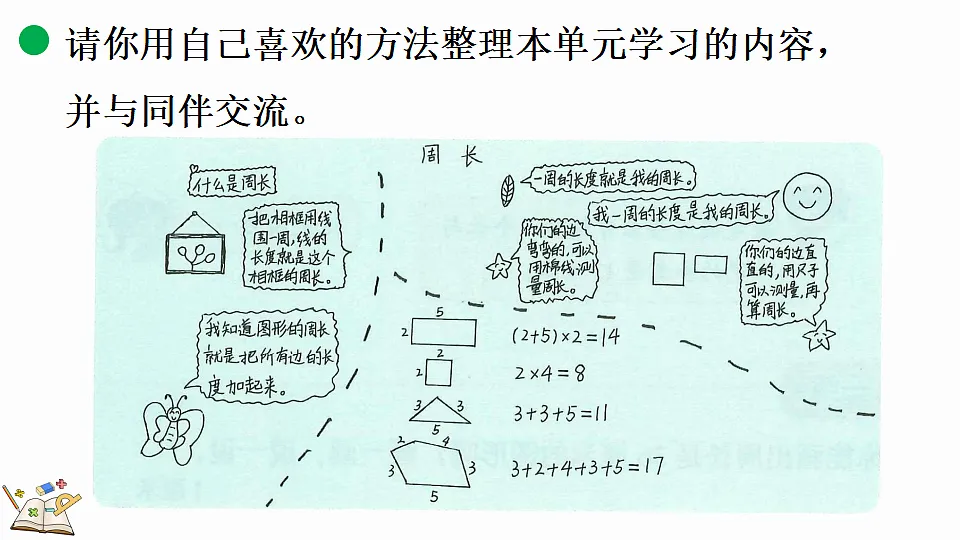 请你用自己喜欢的方法整理本单元学习的内容，
并与同伴交流。
周长
什么是周长
把相框用线
围一周,线的
长度就是这个
相框的周长。
我知道图形的周长
就是把所有边的长
度加起来。
一周的长度就是我的周长。
我一周的长度是我的周长。
你们的边
弯弯的,可以
用棉线测
量周长。
你们的边直
直的,用尺子
可以测量,再
算周长。
5
2
(2+5)×2=14
2
2
2×4=8
3 3
5
3+3+5=11
2 4
3 3
5
3+2+4+3+5=17